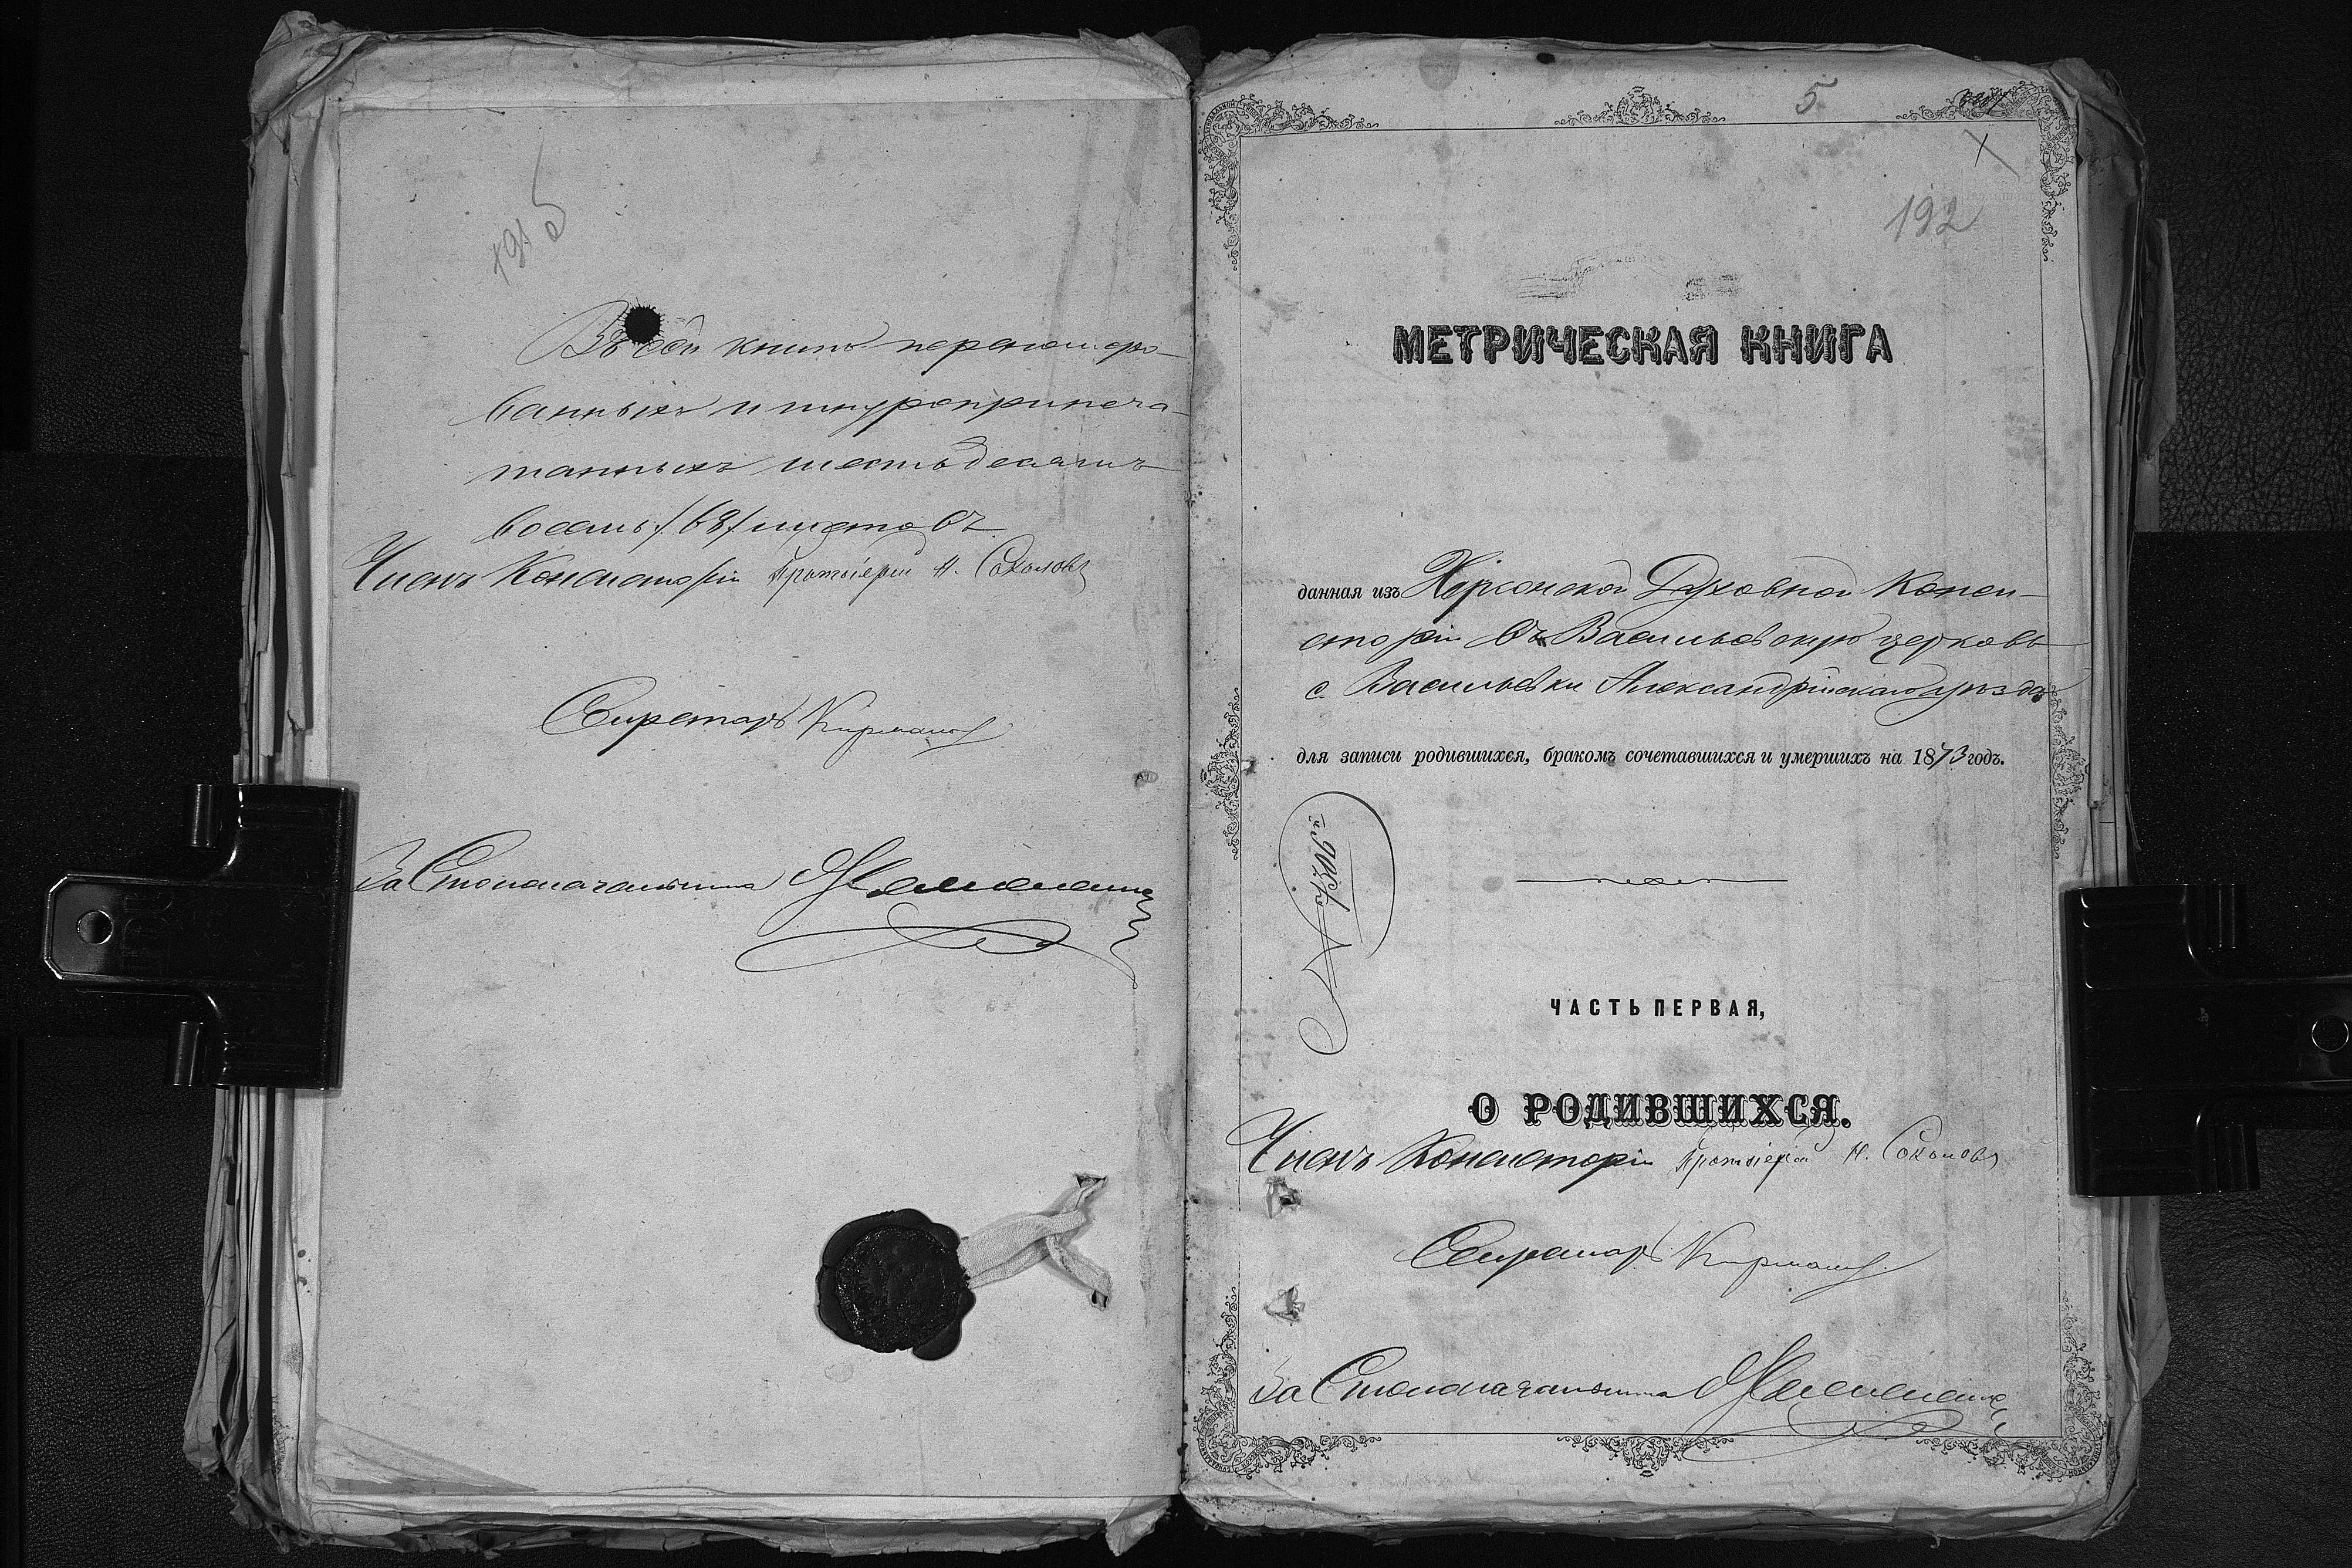 Въ сей книгѣ перенумеро-
ванныхъ и шнуроприпеча-
танныхъ шестьдесятъ
восемь /68/ листовъ.
Членъ Консисторіи Протоіерей Н. Соколовъ
Секретарь
За Столоначальника
5
192
МЕТРИЧЕСКАЯ КНИГА
данная изъ Херсонской Духовной Конси-
сторіи въ Васильевскую церковь
с. Васильевки Александрійскаго уѣзда
для записи родившихся, бракомъ сочетавшихся и умершихъ на 1873 годъ.
ЧАСТЬ ПЕРВАЯ,
О РОДИВШИХСЯ.
Членъ Консисторіи Протоіерей Н. Соколовъ
Секретарь
За Столоначальника